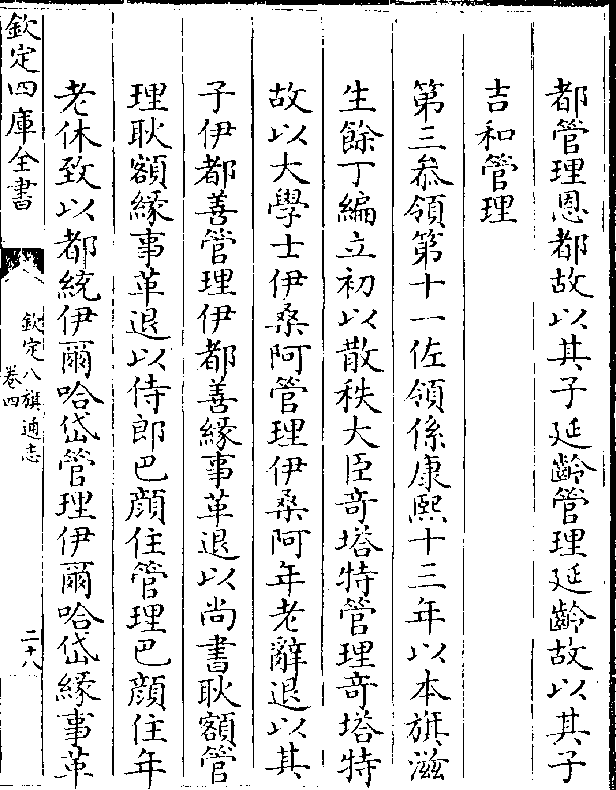 都管理恩都故以其子延齡管理延齡故以其子
吉和管理
第三叅領第十一佐領係康熙十三年以本旗滋
生餘丁編立初以散秩大臣竒塔特管理竒塔特
故以大學士伊桑阿管理伊桑阿年老辭退以其
子伊都善管理伊都善緣事革退以尚書耿額管
理耿額緣事革退以侍郎巴顔住管理巴顔住年
老休致以都統伊爾哈岱管理伊爾哈岱緣事革
欽定四庫全書
欽定八旗通志
卷四
二十八